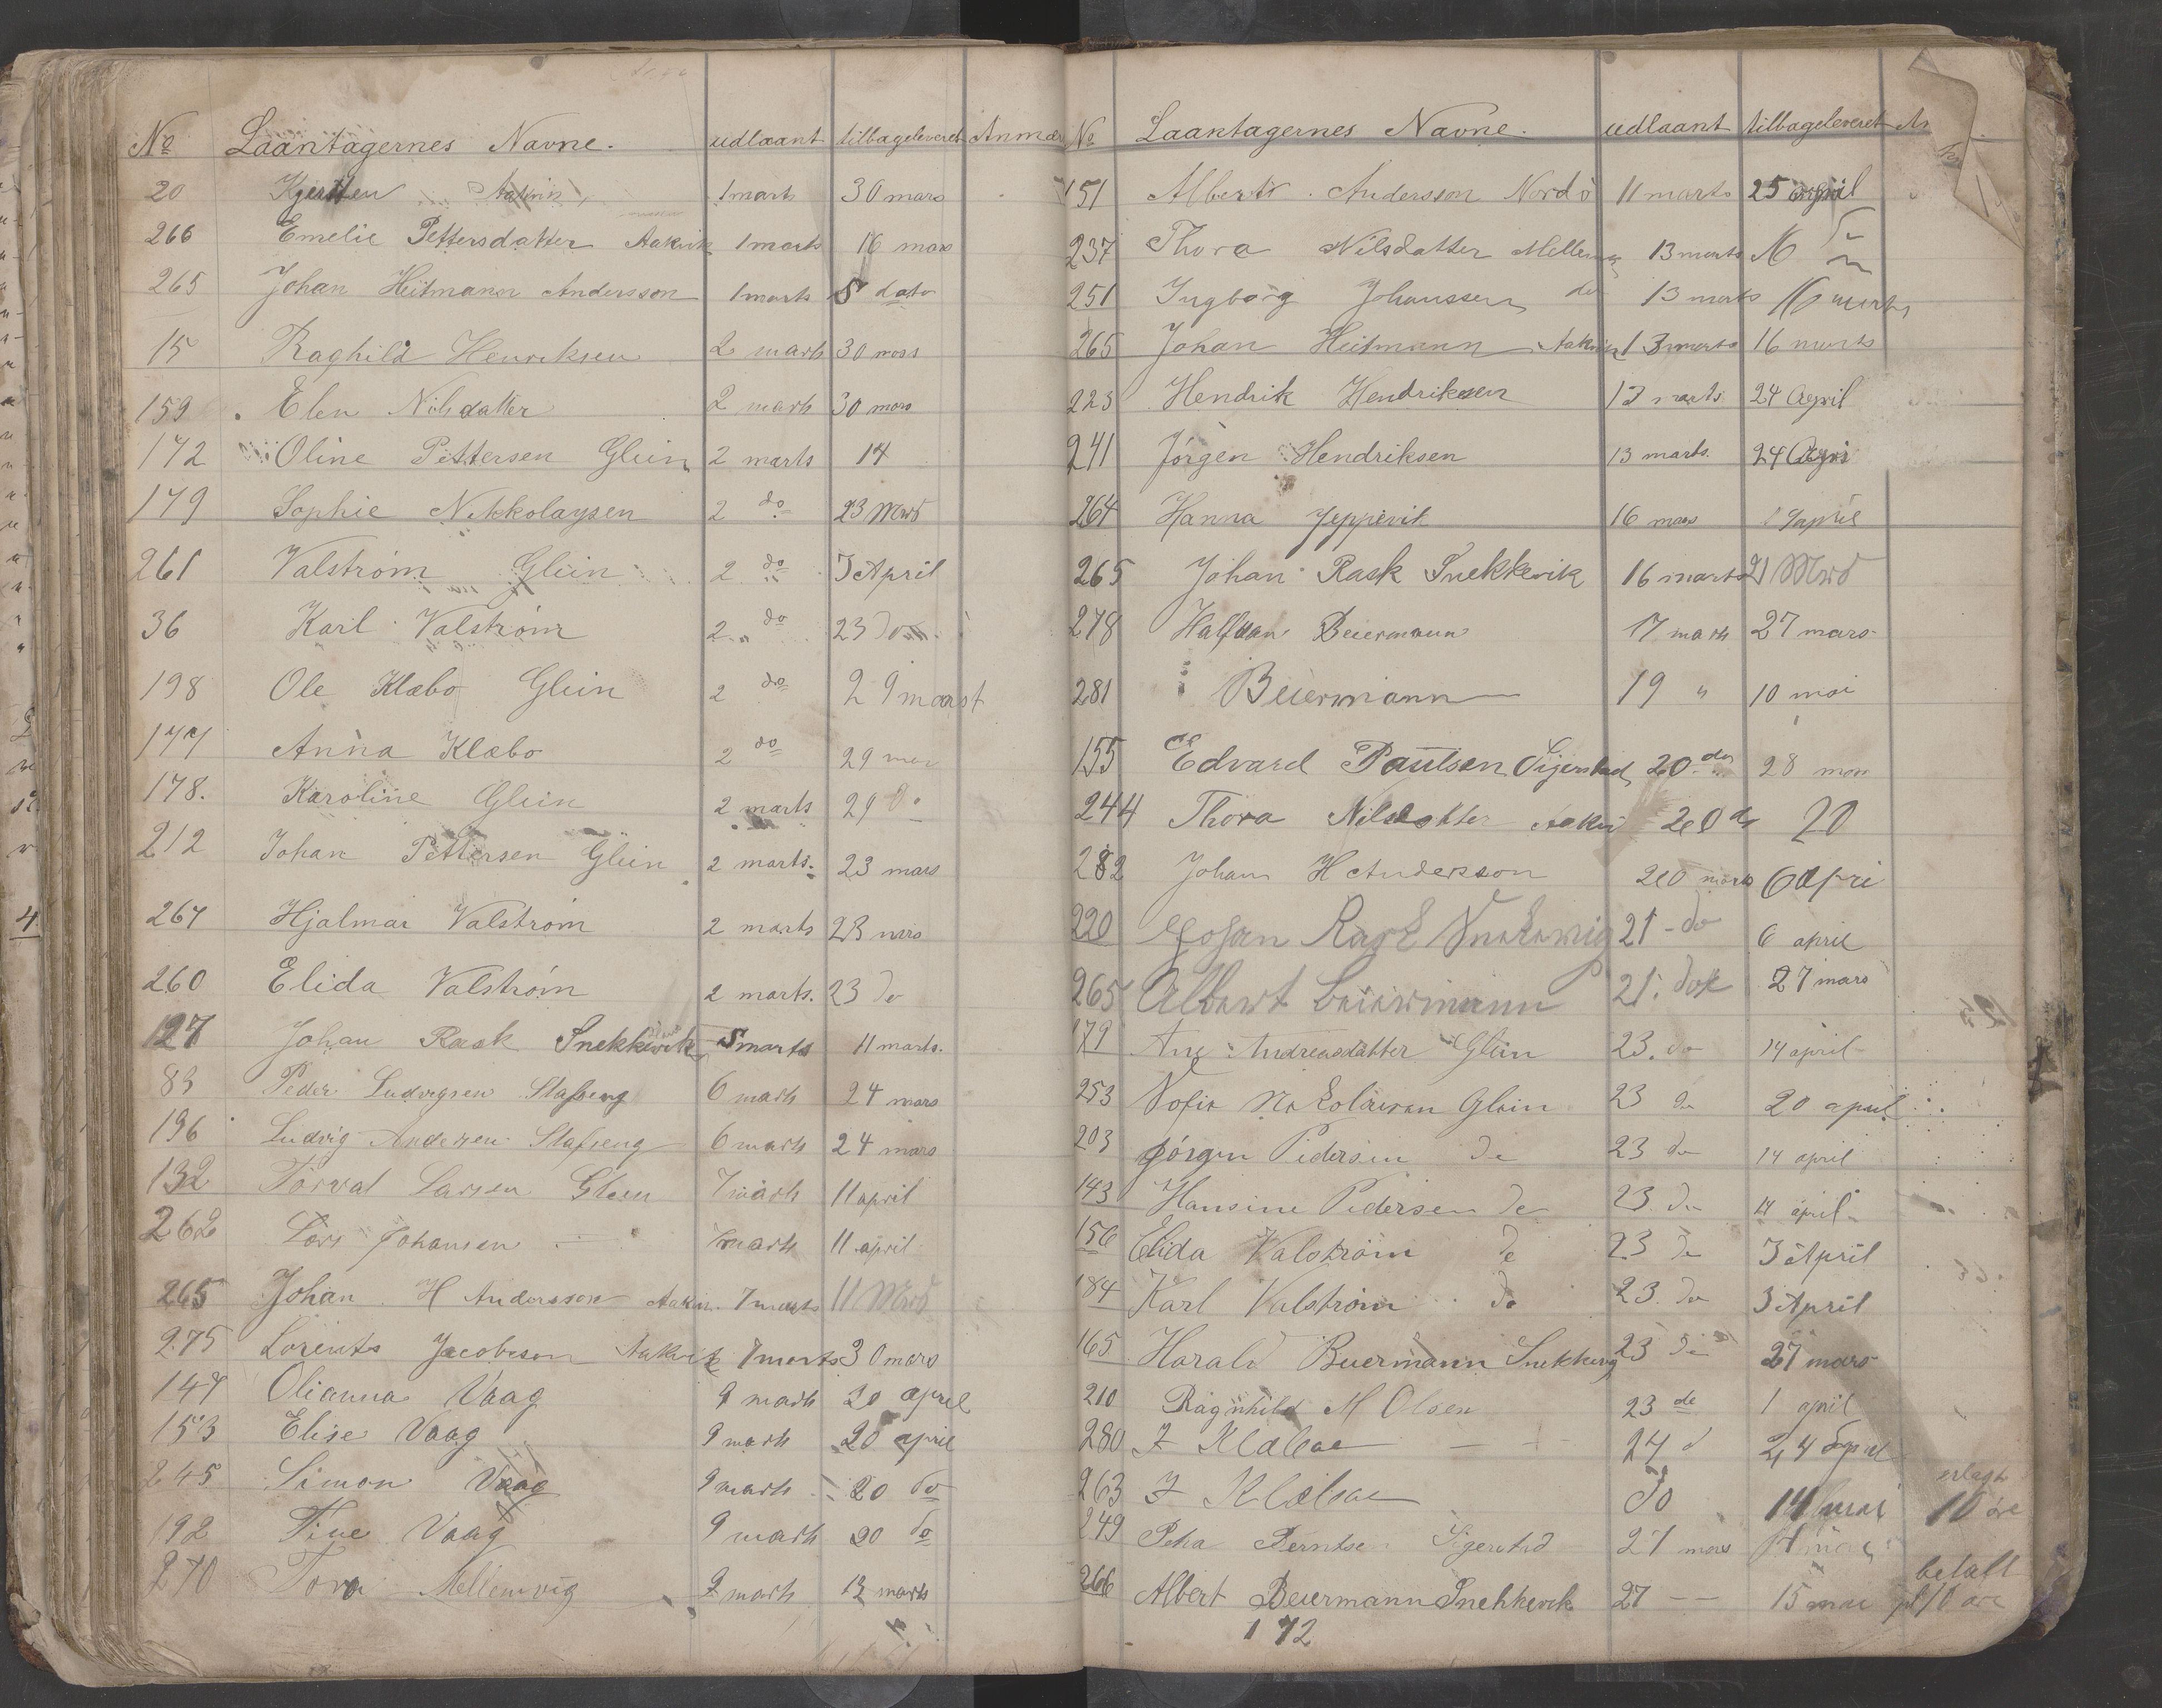 No Laantagernes Navne. udlaant tilbageleveret Anmær
20 Kjersten Aakvik 1 marts 30 mars
266 Emelie Pettersdatter Aakvik 1 marts 16 mars
265 Johan Heitmann Andersson 1 marts 8 dato
15 Raghild Henriksen 2 marts 30 mars
159 Elen Nilsdatter 2 marts 30 mars
172 Oline Pettersen Glein 2 marts 14
179 Sophie Nikkolaysen 2 do 23 Mrs
261 Valstrøm Glein 2 do 3 April
36 Karl Valstrøm 2 " do 23 do
198 Ole Klæbo Glein 2 do 29 marst
177 Anna Klæbo 2 do 29 mar
178. Karoline Glein 2 marts 29 do
212 Johan Pettersen Glein 2 marts. 23 mars
267 Hjalmar Valstrøm 2 marts 23 mrs
260 Elida Valstrøm 2 marts. 23 do
127 Johan Rask Snekkevik 5 marts 11 marts.
83 Peder Ludvigsen Slafseng 6 marts 24 mars
196 Ludvig Andersen Slafseng 6 marts 24 mars
132 Torval Larsen Glein 7 marts 11 april
262 Lars Johansen 7 marts 11 april
265 Johan H Andersson Aakvi. 7 marts 11 Mrs
275 Lorents Jacobsson Aakvik 7 marts 30 mars
147 Olianna Vaag 9 marts 20 april
153 Elise Vaag 9 marts 20 april
245 Simon Vaag 9 marts 20 do
192 Tine Vaag 9 marts 20 do
270 Tora Mellemvig 9 marts 13 marts
No Laantagernes Navne. udlaant tilbageleveret An
151 Albert Andersson Nordø 11 marts 25 april
237 Thora Nilsdatter Mellemv 13 marts
251 Ingborg Johanssen do 13 marts 16 marts
265 Johan Heitmann Aakvik 13 marts 16 marts
223 Hendrik Hendriksen 13 marts 24 April
241 Jørgen Hendriksen 13 marts. 24 Apri
264 Hanna Jeppevik 16 mars 9 april
265 Johan Rask Snekkevik 16 marts 21 Mrs
278 Halfdan Beiermann 17 marts 27 mars
281 Beiermann 19 " 10 mai
155 Edvard Paulsen Sjerstad 20 do 28 mars
244 Thora Nilsdatter Aakvi 20 do 20
282 Johan H Andersson 20 mars 6 Apri
220 Johan Rask Snekevig 21 - do 6 april
265 Albert Beiermann 21. do 27 mars
179 Ane Andreasdatter Glein 23. do 14 april
253 Sofie Nikolaisen Glein 23 do 20 april
203 Jørgen Pedersen do 23 do 14 april
143 Hansine Pedersen do 23 do 14 april
156 Elida Valstrøm do 23 do 3 April
184 Karl Valstrøm do 23. do 3 April
165 Harald Beiermann Snekkevig 23 do 27 mars
210 Ragnhild M Olsen 23 de 1 april
280 J Klæboe 24 d 24 April
263 J Klæboe do 14 mai erlagt 10 øre
249 Petra Berntsen 27 mars
266 Albert Beiermann Snekkevik 27 - - 15 mai betalt 10 øre
172